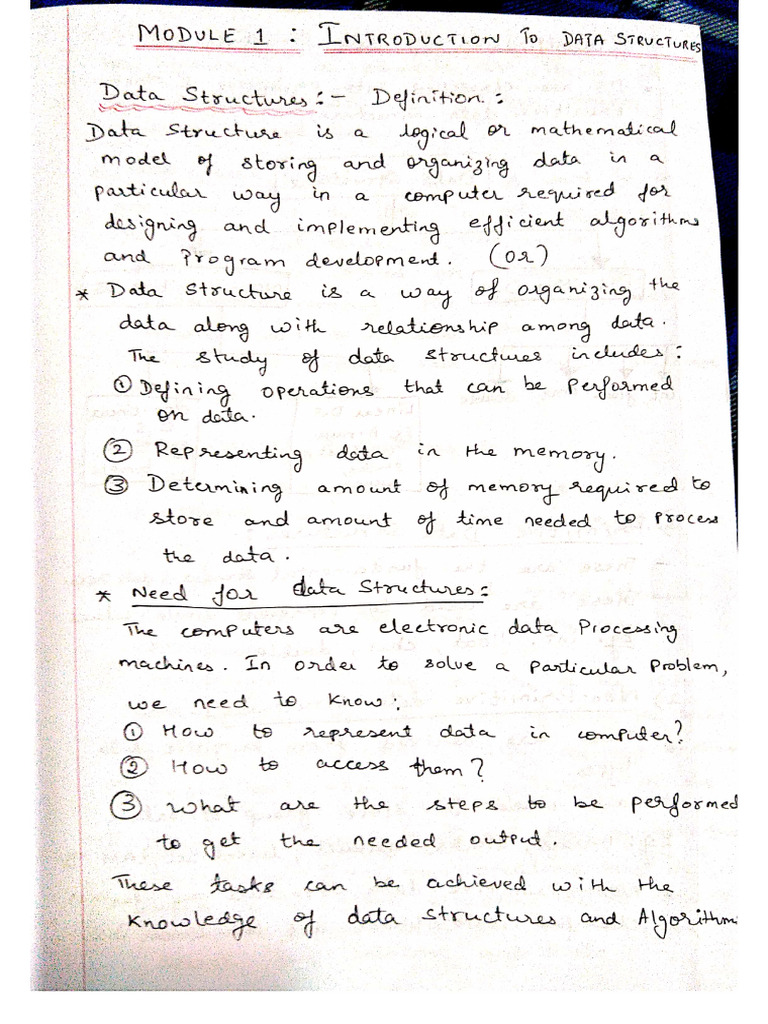 MODULE 1 : INTRODUCTION TO DATA STRUCTURES
Data Structures:- Definition:
Data Structure is a logical or mathematical
model of storing and organizing data in a
particular way in a computer required for
designing and implementing efficient algorithms
and Program development. (or)
* Data Structure is a way of organizing the
data along with relationship among data.
The study of data structures includes:
① Defining operations that can be Performed
on data.
② Representing data in the memory.
③ Determining amount of memory required to
store and amount of time needed to Process
the data.
* Need for data Structures:
The computers are electronic data Processing
machines. In order to solve a Particular Problem,
we need to know:
① How to represent data in computer?
② How to access them?
③ What are the steps to be performed
to get the needed output.
These tasks can be achieved with the
knowledge of data structures and Algorithm